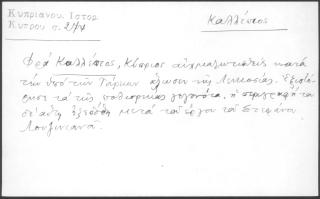 Κυπριανου. Ιστορ.
Κυπρου σ.
Καλλέπιος
Φρά Καλλέπιος, Κύπριος αἰχμαλωτισθεὶς κατὰ
τὴν ὑπὸ τῶν Τούρκων ἅλωσιν τῆς Λευκωσίας. Ἐξιστό-
ρησε τὰ τῆς πολιορκίας γεγονότα, ἡ περιγραφὴ
ἐξεδόθη μετὰ τοῦ ἔργου τοῦ Στεφάνου
Λουζινιανοῦ.